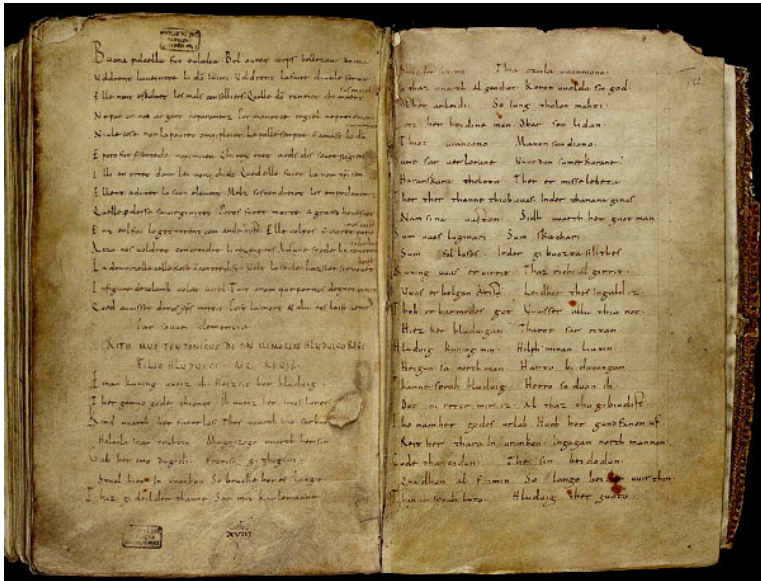 Buona pulcella fut eulalia. Bel auret corps bellezour anima
Voldrent la ueintre li dõ inimi. Voldrent la faire diaule seruir
Elle nont eskoltet les mals conselliers. Quelle dõ raneiet chi maent
sus en ciel
Ne por or ned argent ne paramenz. Por manatce regiel ne preiement
Niule cose non la pouret omq; pleier. La polle sempre n amast lo dõ
E poro fut
Il li enortet dont lei nonq; chielt Qued elle fuiet lo nom
Ell ent adunet lo suon element. Melz sostendreiet les empedementz
Quelle perdesse sa uirginitet. Poros furet morte a grand honestet
Enz enl fou la getterent com arde tost. Elle colpes n auret
A czo nos uoldret concreidre li rex pagiens. Ad une spede li roueret
La domnizelle celle kose non contredist. Volt lo seule lazsier si ruouet
In figure de colomb uolat a ciel. Tuit oram que por nos degnet
Qued auuisset de nos
Par souue clementia
RITHMUS TEUTONICUS DE PIAE MEMORIAE HLUDUICO REGE
FILIO HLUDUICI
Einan kuning uueiz ih. Heizsit her hluduig.
Ther gerno gode thionot. Ih uueiz her imos lonot
Kind uuarth her faterlos. Thes uuarth imo sar buoz
Holoda inan truhtin Magaczogo uuarth her sin
Gab her imo dugidi. Fronisc githigini.
Stual hier in urankon So bruche her es lango
Thaz gideilder thanne Sar mit karlemanne
Thia czala uuunniono.
So thaz uuarth al gendiot Koron uuolda sin god
Ob her arbeidi So lung tholon mahti
Lietz her heidine man Obar seo lidan
Thiot urancono Manon sundiono
Sume sar uerlorane Uuurdun sum erkorane
Haranskara tholota Ther er misselebeta
Ther ther thanne thiob uuas Inder thanana ginas
Nam sina uaston Sidh uuarth her guot man
Sum uuas luginari Sum skachari
Sum fol loses Inder gibuozta sih thes
Kuning uuas eruirrit Thaz richi al girrit
Uuas erbolgan Leidhor thes ingald iz
Thoh erbarmedes got Uuisser alla thia not
Hiez her hluduigan Tharot sar ritan
Hluduig kuning min Hilph minan liutin
Heigun sa northman Harto biduuungan
Thanne sprah hluduig Herro so duon ih
Dot ni rette mir iz Al thaz thu gibiudist
Tho nam her godes urlub Huob her gundfanon uf
Reit her thara in urankon Ingagan northmannon
Gode thancodun The sin beidodun
Quadhun al fro min So lango beidon uuir thin
Thanne sprah luto Hluduig ther guoto